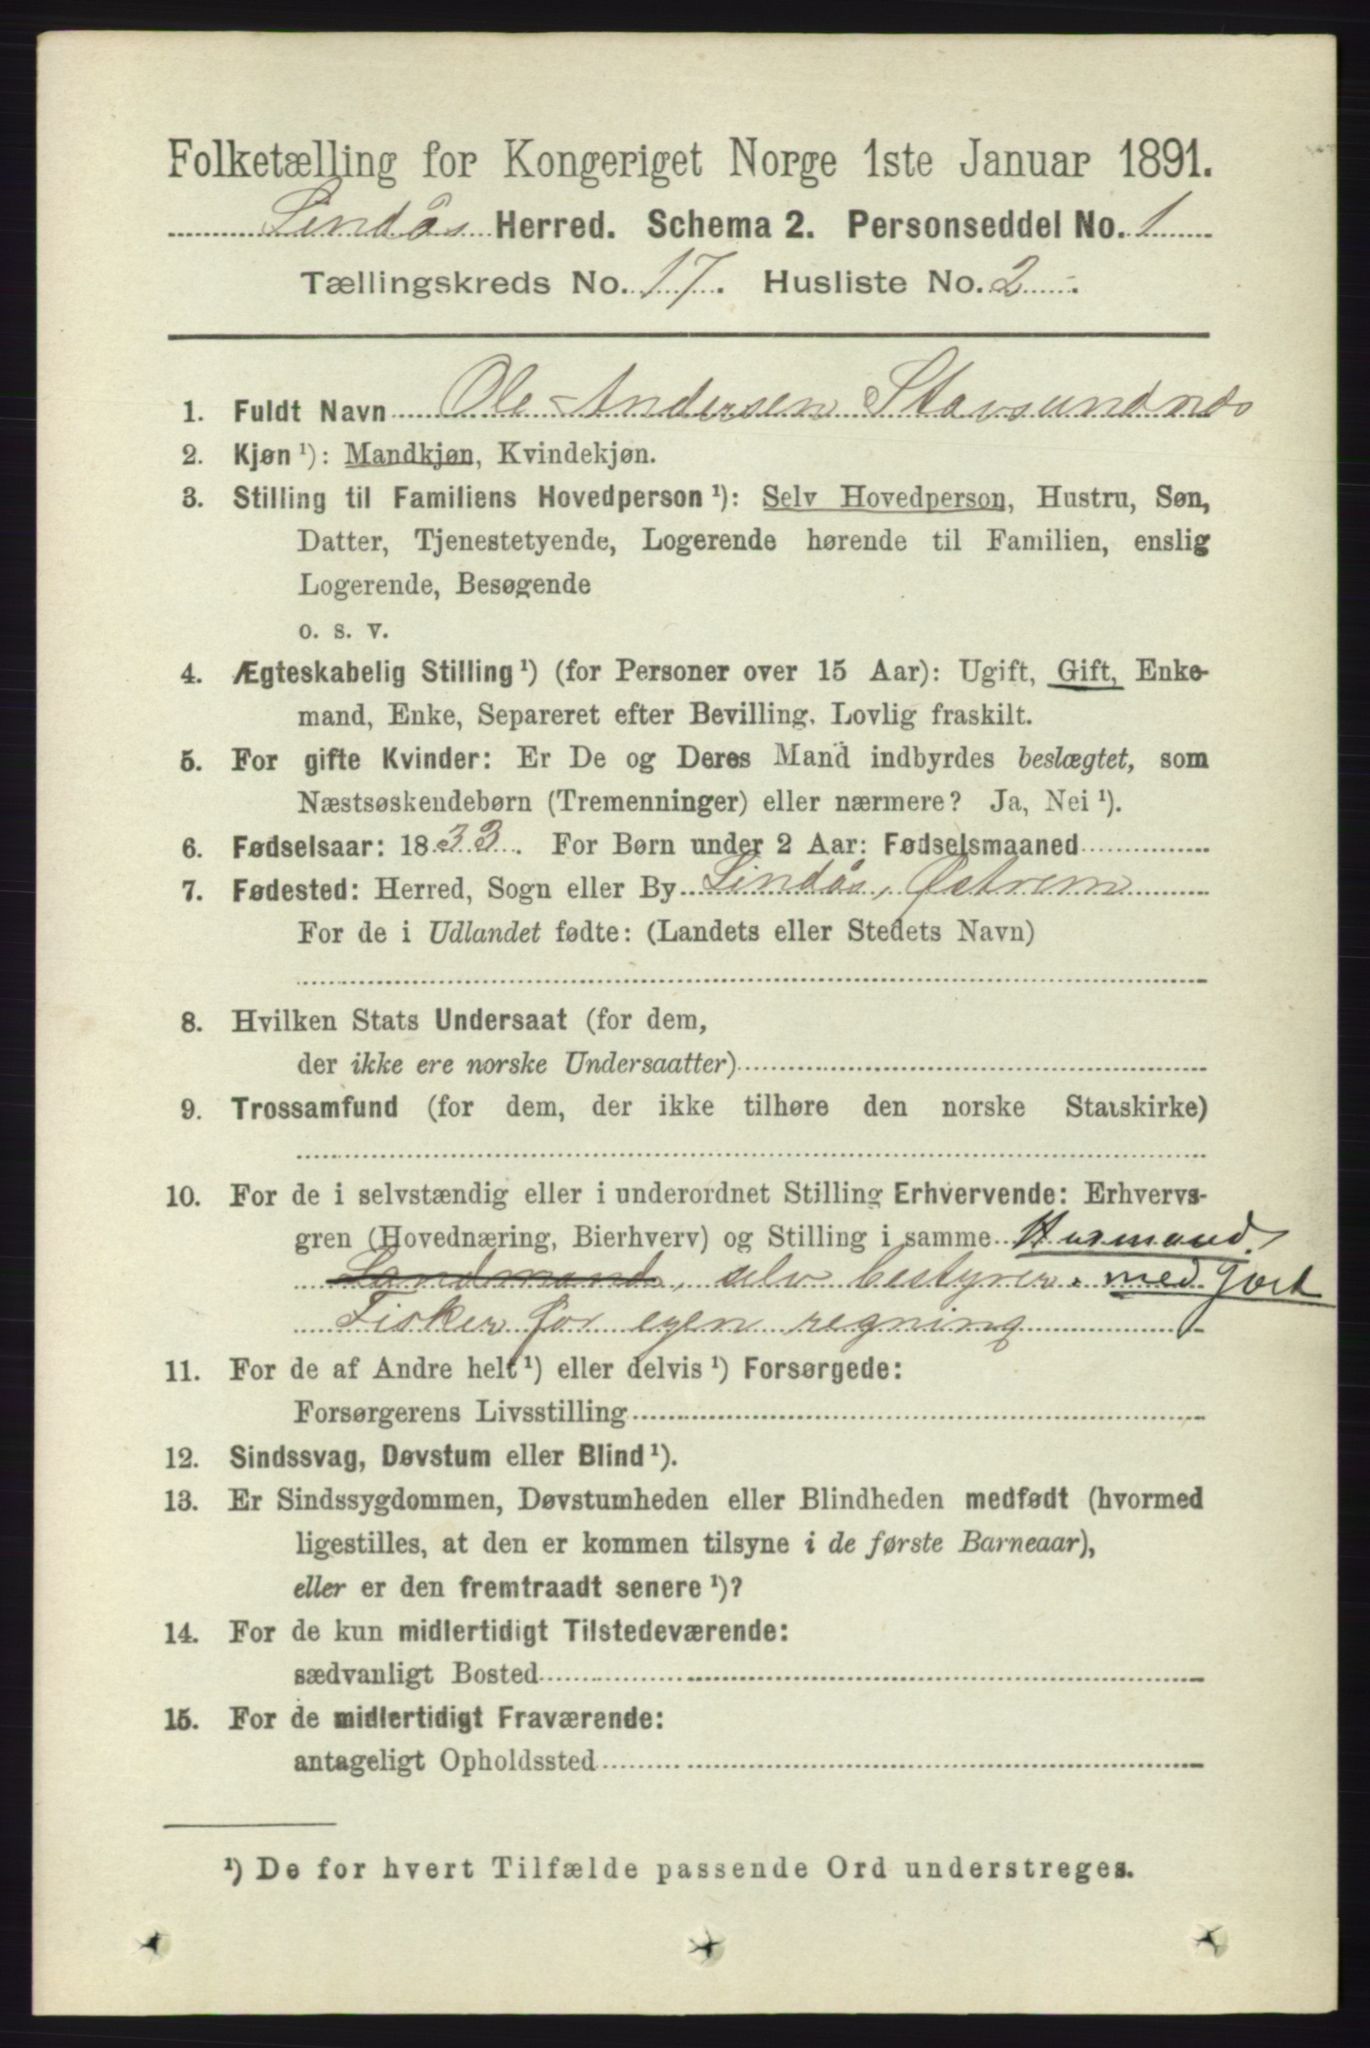 Folketælling for Kongeriget Norge 1ste Januar 1891.
Lindås Herred. Schema 2. Personseddel No. 1
Tællingskreds No. 17. Husliste No. 2.
1. Fuldt Navn Ole Andersen Stavsundnæs
2. Kjøn ¹): Mandkjøn, Kvindekjøn.
3. Stilling til Familiens Hovedperson ¹): Selv Hovedperson, Hustru, Søn,
Datter, Tjenestetyende, Logerende hørende til Familien, enslig
Logerende, Besøgende
o. s. v.
4. Ægteskabelig Stilling ¹) (for Personer over 15 Aar): Ugift, Gift, Enke-
mand, Enke, Separeret efter Bevilling. Lovlig fraskilt.
5. For gifte Kvinder: Er De og Deres Mand indbyrdes beslægtet, som
Næstsøskendebørn (Tremenninger) eller nærmere? Ja, Nei ¹).
6. Fødselsaar: 1833. For Børn under 2 Aar: Fødselsmaaned
7. Fødested: Herred, Sogn eller By Lindås, Østrem
For de i Udlandet fødte: (Landets eller Stedets Navn)
8. Hvilken Stats Undersaat (for dem,
der ikke ere norske Undersaatter)
9. Trossamfund (for dem, der ikke tilhøre den norske Statskirke)
10. For de i selvstændig eller i underordnet Stilling Erhvervende: Erhvervs-
gren (Hovednæring, Bierhverv) og Stilling i samme Husmand
Landmand, selv bestyrer. med Jord
Fisker for egen regning
11. For de af Andre helt ¹) eller delvis ¹) Forsørgede:
Forsørgerens Livsstilling
12. Sindssvag, Døvstum eller Blind ¹).
13. Er Sindssygdommen, Døvstumheden eller Blindheden medfødt (hvormed
ligestilles, at den er kommen tilsyne i de første Barneaar),
eller er den fremtraadt senere ¹)?
14. For de kun midlertidigt Tilstedeværende:
sædvanligt Bosted
15. For de midlertidigt Fraværende:
antageligt Opholdssted
¹) De for hvert Tilfælde passende Ord understreges.